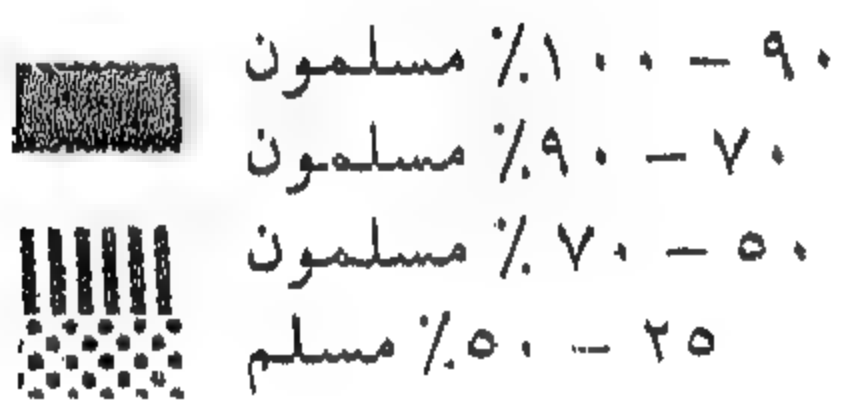 ٩٠ – ١٠٠٪ مسلمون
٧٠ – ٩٠٪ مسلمون
٥٠ – ٧٠٪ مسلمون
٢٥ – ٥٠٪ مسلم